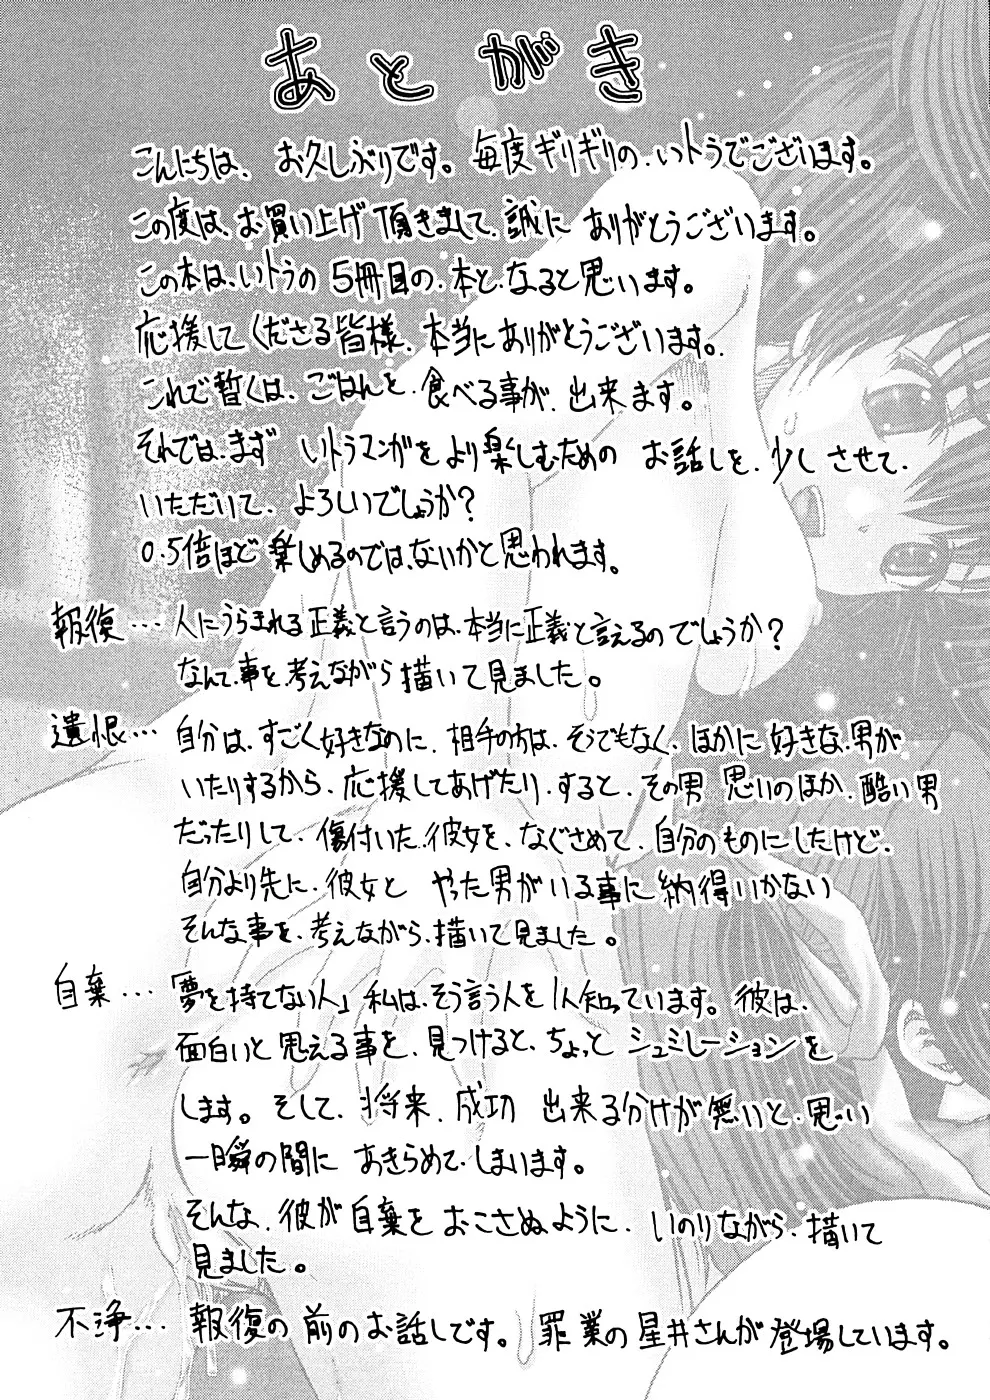 あとがき
こんにちは、お久しぶりです。毎度ギリギリの、いトうでございます。
この度は、お買い上げ頂きまして、誠にありがとうございます。
この本は、いトうの5冊目の、本と、なると思います。
応援してくださる皆様、本当にありがとうございます。
これで暫くは、ごはんを、食べる事が、出来ます。
それでは、まず いトうマンガをより楽しむためのお話しを、少しさせて、
いただいて、よろしいでしょうか?
0.5倍ほど楽しめるのでは、ないかと思われます。
報復… 人にうらまれる正義と言うのは、本当に正義と言えるのでしょうか?
なんて、事を、考えながら描いて見ました。
遺恨… 自分は、すごく好きなのに、相手の方は、そうでもなく、ほかに好きな、男が
いたりするから、応援してあげたり、すると、その男 思いのほか、酷い男
だったりして、傷付いた、彼女を、なぐさめて、自分のものにしたけど、
自分より先に、彼女と やった男がいる事に納得いかない
そんな事を、考えながら、描いて見ました。
自棄… 「夢を持てない人」私は、そう言う人を1人知っています。彼は、
面白いと思える事を、見つけると、ちょっとシュミレーションを
します。そして、将来、成功 出来る分けが無いと、思い
一瞬の間に あきらめて、しまいます。
そんな、彼が自棄をおこさぬように、いのりながら、描いて
見ました。
不浄… 報復の前のお話しです。罪業の星井さんが登場しています。